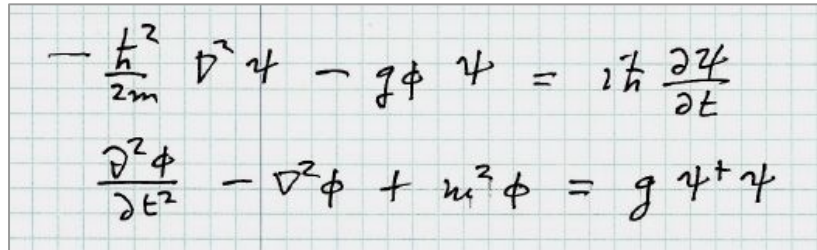 − ħ²/2m ∇²ψ − gϕ ψ = iħ ∂ψ/∂t
∂²ϕ/∂t² − ∇²ϕ + m²ϕ = g ψ⁺ψ